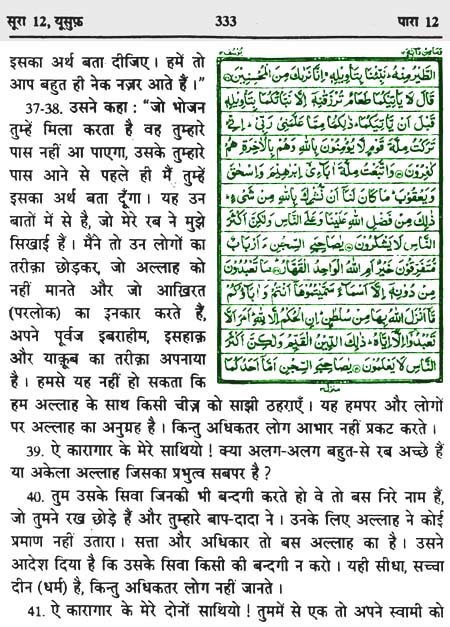 सूरा 12, यूसुफ़ 333 पारा 12
इसका अर्थ बता दीजिए। हमें तो
आप बहुत ही नेक नज़र आते हैं।”
37-38. उसने कहा : “जो भोजन
तुम्हें मिला करता है वह तुम्हारे
पास नहीं आ पाएगा, उसके तुम्हारे
पास आने से पहले ही मैं तुम्हें
इसका अर्थ बता दूँगा। यह उन
बातों में से है, जो मेरे रब ने मुझे
सिखाई हैं। मैंने तो उन लोगों का
तरीक़ा छोड़कर, जो अल्लाह को
नहीं मानते और जो आख़िरत
(परलोक) का इनकार करते हैं,
अपने पूर्वज इबराहीम, इसहाक़
और याक़ूब का तरीक़ा अपनाया
है। हमसे यह नहीं हो सकता कि
الطير منه نبئنا بتأويله انا نرىك من المحسنين
قال لا يأتيكما طعام ترزقنه الا نبأتكما بتأويله
قبل ان يأتيكما ذلكما مما علمني ربي اني
تركت ملة قوم لا يؤمنون بالله وهم بالاخرة هم
كفرون واتبعت ملة اباءي ابرهيم واسحق
ويعقوب ما كان لنا ان نشرك بالله من شيء
ذلك من فضل الله علينا وعلى الناس ولكن اكثر
الناس لا يشكرون يصاحبي السجن ءارباب
متفرقون خير ام الله الواحد القهار ما تعبدون
من دونه الا اسماء سميتموها انتم واباؤكم
ما انزل الله بها من سلطن ان الحكم الا لله امر الا
تعبدوا الا اياه ذلك الدين القيم ولكن اكثر
الناس لا يعلمون يصاحبي السجن اما احدكما
हम अल्लाह के साथ किसी चीज़ को साझी ठहराएँ। यह हमपर और लोगों
पर अल्लाह का अनुग्रह है। किन्तु अधिकतर लोग आभार नहीं प्रकट करते।
39. ऐ कारागार के मेरे साथियो! क्या अलग-अलग बहुत-से रब अच्छे हैं
या अकेला अल्लाह जिसका प्रभुत्व सबपर है?
40. तुम उसके सिवा जिनकी भी बन्दगी करते हो वे तो बस निरे नाम हैं,
जो तुमने रख छोड़े हैं और तुम्हारे बाप-दादा ने। उनके लिए अल्लाह ने कोई
प्रमाण नहीं उतारा। सत्ता और अधिकार तो बस अल्लाह का है। उसने
आदेश दिया है कि उसके सिवा किसी की बन्दगी न करो। यही सीधा, सच्चा
दीन (धर्म) है, किन्तु अधिकतर लोग नहीं जानते।
41. ऐ कारागार के मेरे दोनों साथियो! तुममें से एक तो अपने स्वामी को